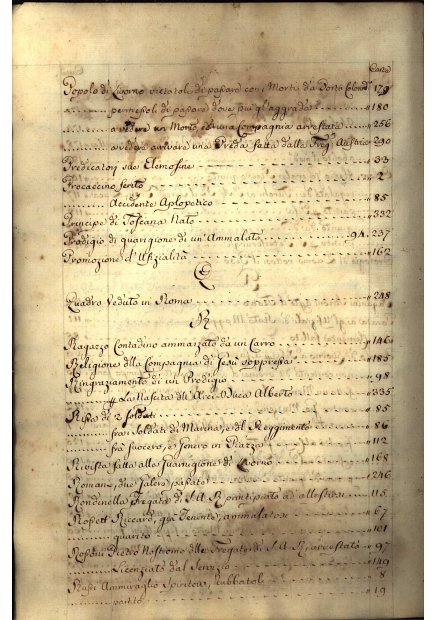 Carte
Popolo di Livorno vietatoli di passare con i Morti da Porta Colonn. 179
permessoli di passare dove più gl'aggrada 180
a vedere un Morto ed una Compagnia arrestata 256
a vedere arrivare una Preda fatta dalla Freg. 290
Predicatori sue Elemosine 33
Procaccino ferito 2
Accidente Aplopetico 85
Principe di Toscana Nato 332
Prodigio di guarigione di un' Ammalato 94. 237
Promozione d'Ufizialità 162
Q
Quadro Veduto in Roma 248
R
Ragazzo Contadino ammazzato da un Carro 146
Religione della Compagnia di Gesù soppressa 185
Ringraziamento di un Prodigio 98
p. La Nascita dell' Arci-Duca Alberto 335
Rissa di 2 soldati 85
frai Soldati di Marina, e del Reggimento 86
frà suocero, e Genero in Piazza 112
Rivista fatta alla Guarnigione di Livorno 168
Romani, due 246
Rondinella Fregata di S. A. R. principiato ad allestirsi 115
Rossett Riccard, qm Tenente, ammalatosi 67
guarito 101
Rossini Pietro Nostromo delle Fregate di S. A. R. arrestato 97
Licenziato dal Servizio 149
Russi Ammiraglio Spiritow, Rubbatoli 8
partito 19